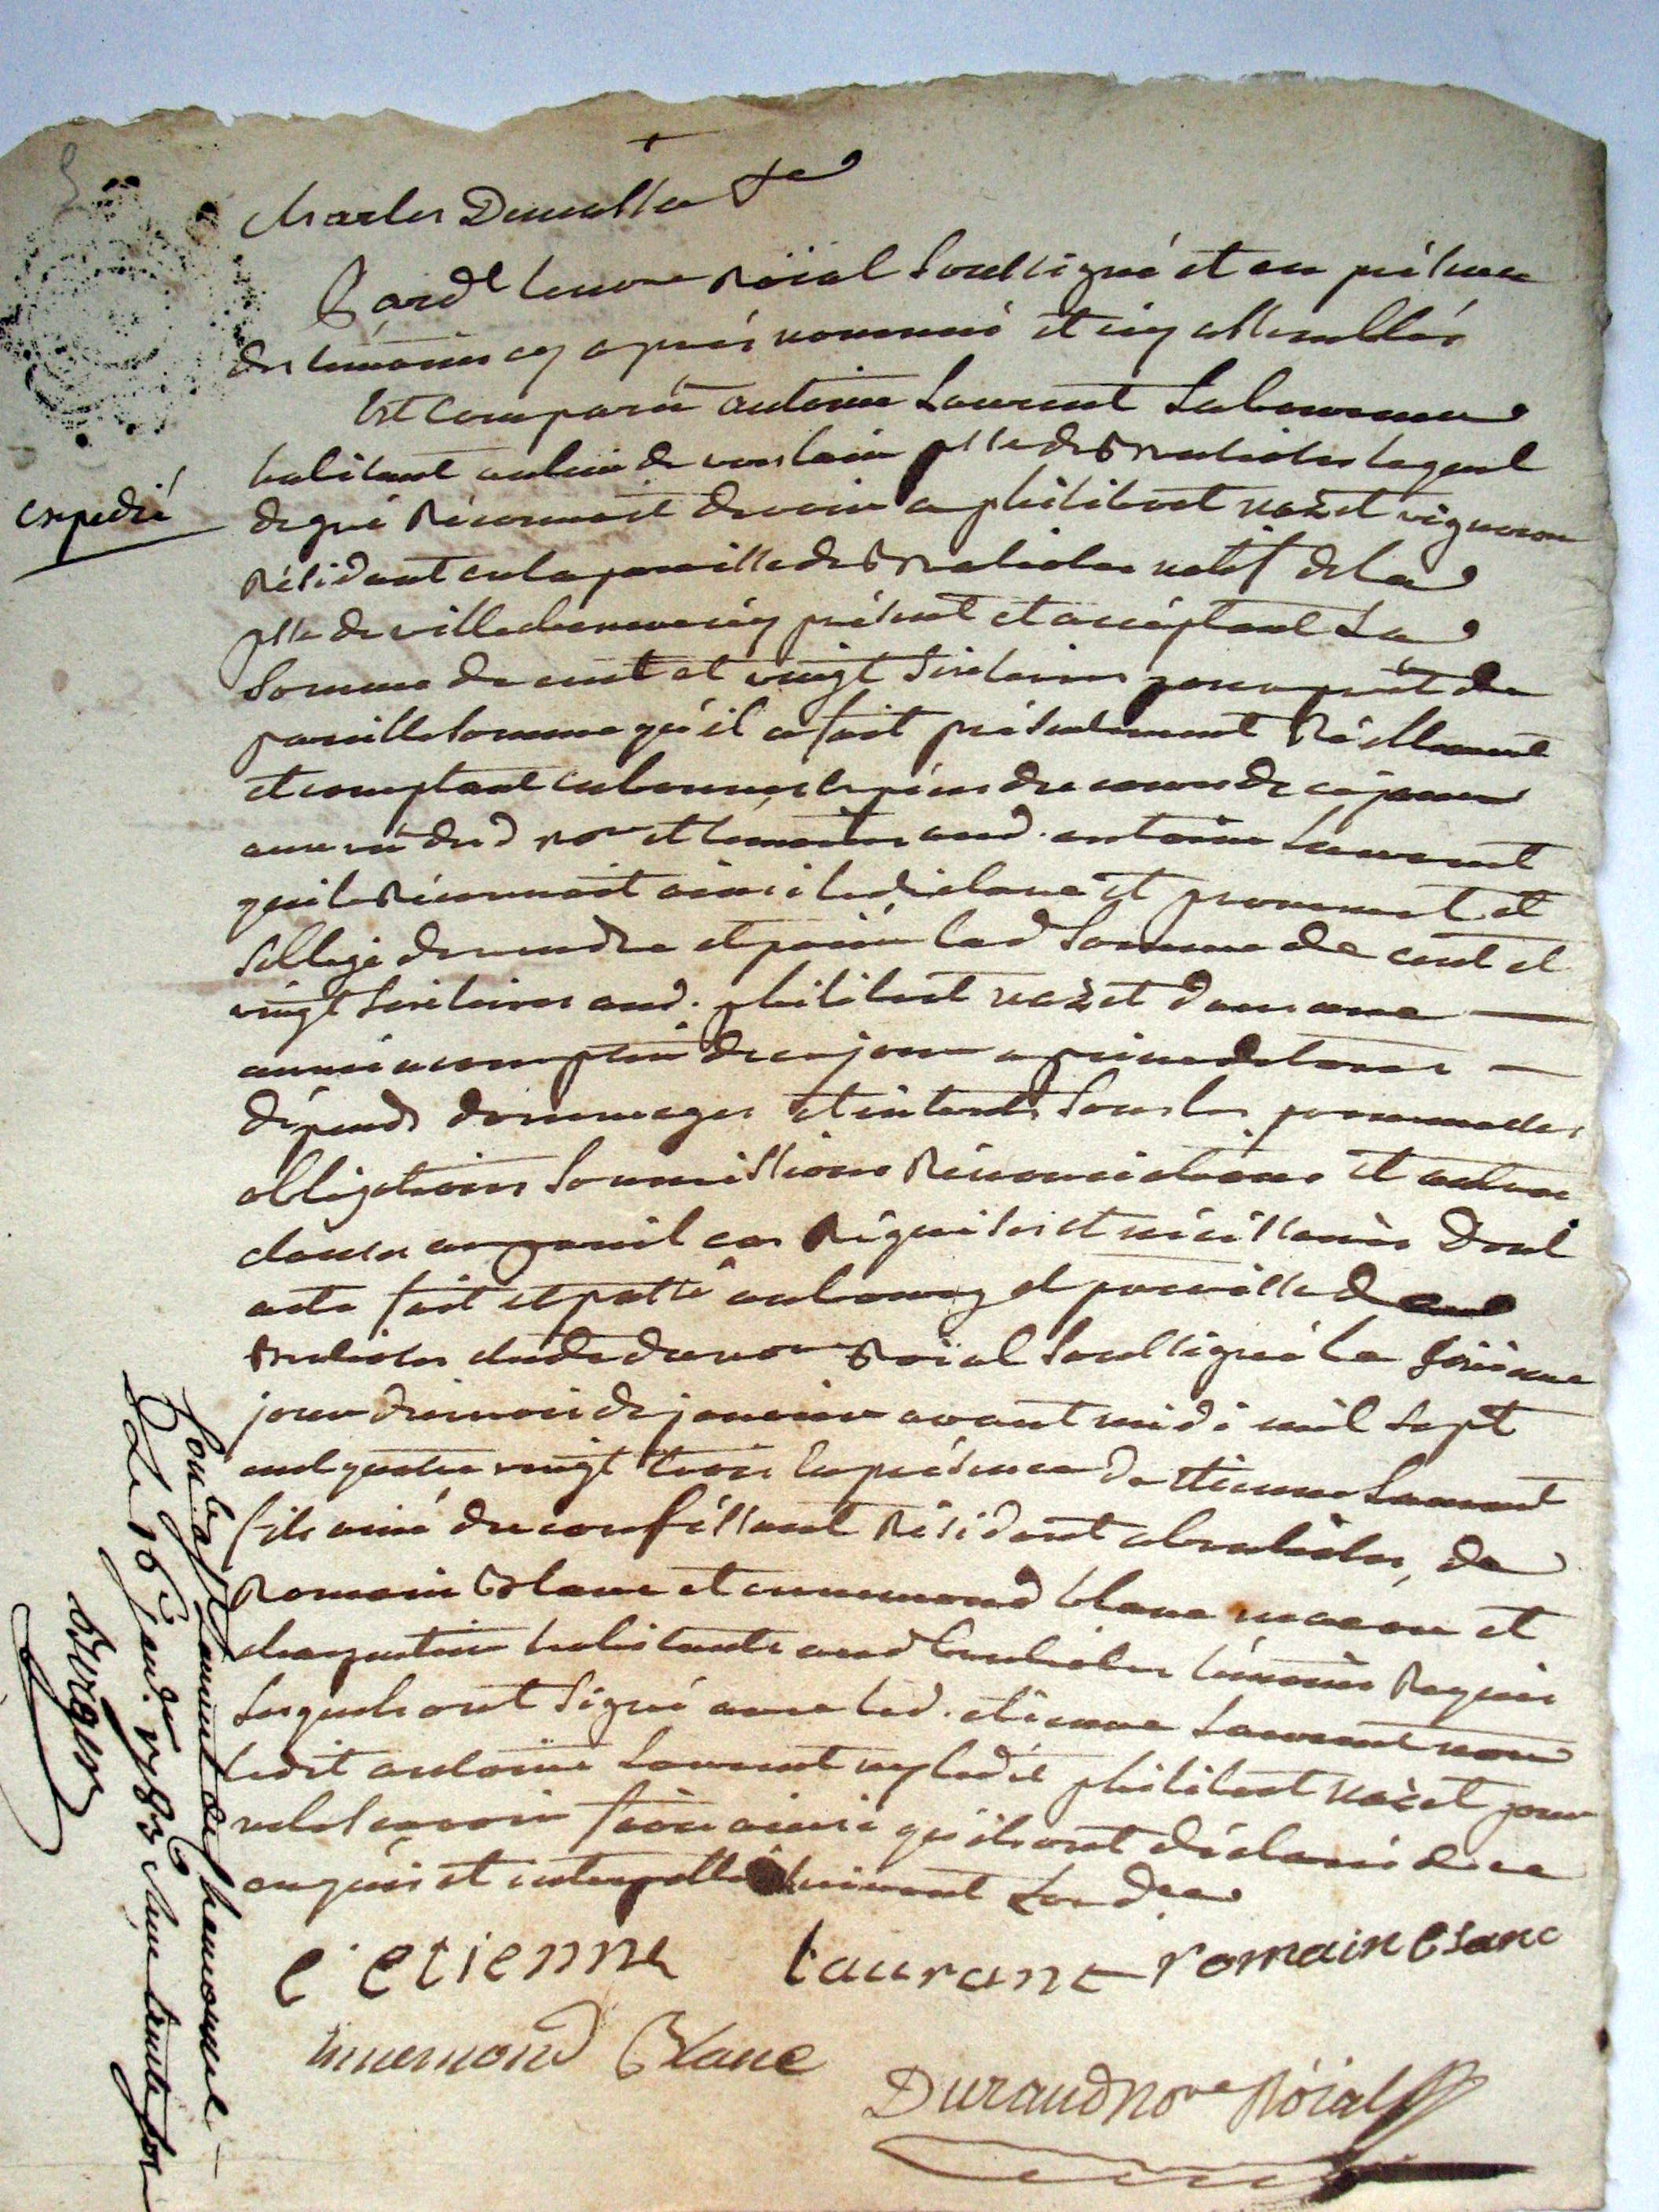 Pard. le no.re Roïal Soussigné et en présence
des témoins cy après nommé et icy assemblés
est comparu antoine Laurent Laboureur
habitant au lieu de p.sse de Brulioles lequel
de gré Reconnoit devoir a philibert nazet vigneron
Résidant en la paroisse de Brulioles natif de la
p.sse de villecheneve icy présent et acceptant La
Somme de cent et vingt Six livres pour prêt de
pareille Somme qu'il a fait présentement Réellement
et comptant en bonnes Espéces du cours de ce jour
a la vüe dud no.re et témoins aud. antoine Laurent
qui le Réconnoit ainsi le déclare et promet et
Soblige de rendre et païer lad Somme de cent et
vingt Six livres aud. philibert nazet dans une
année a compter de ce jour a peine de tous
dépends dommages et intérets Sous les promesses
obligations Soumissions Rénonciations et autres
clauses en pareil cas Réquises et nécéssaires Dont
acte fait et passé au bourg et paroisse de
Brulioles étude du no.re Roïal Soussigné Le
jour du mois de janvier avant midi mil Sept
cent quatre vingt trois En présence de Etienne Laurent
fils ainé du conféssant Résidant a Brulioles, de
Romain Blanc et ennemond blanc macon et
charpentier habitants aud Brulioles témoins Requis
Lesquels ont Signé avec led. etienne Laurent non
Ledit antoine Laurent ny ledit philibert nazet pour
ne le Savoir faire ainsi qu'ils ont déclaré de ce
enquis et interpellé Suivant Lord.ce
e etienne Laurant romain blanc
ennemond Blanc
Durand No.re Róial
expedié
16 janv.er 1783